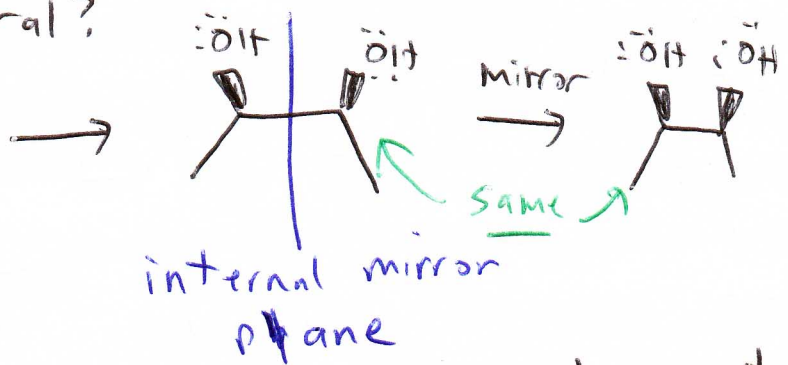 ral?
:ÖH
ÖH
mirror
:ÖH
:ÖH
same
internal mirror
plane